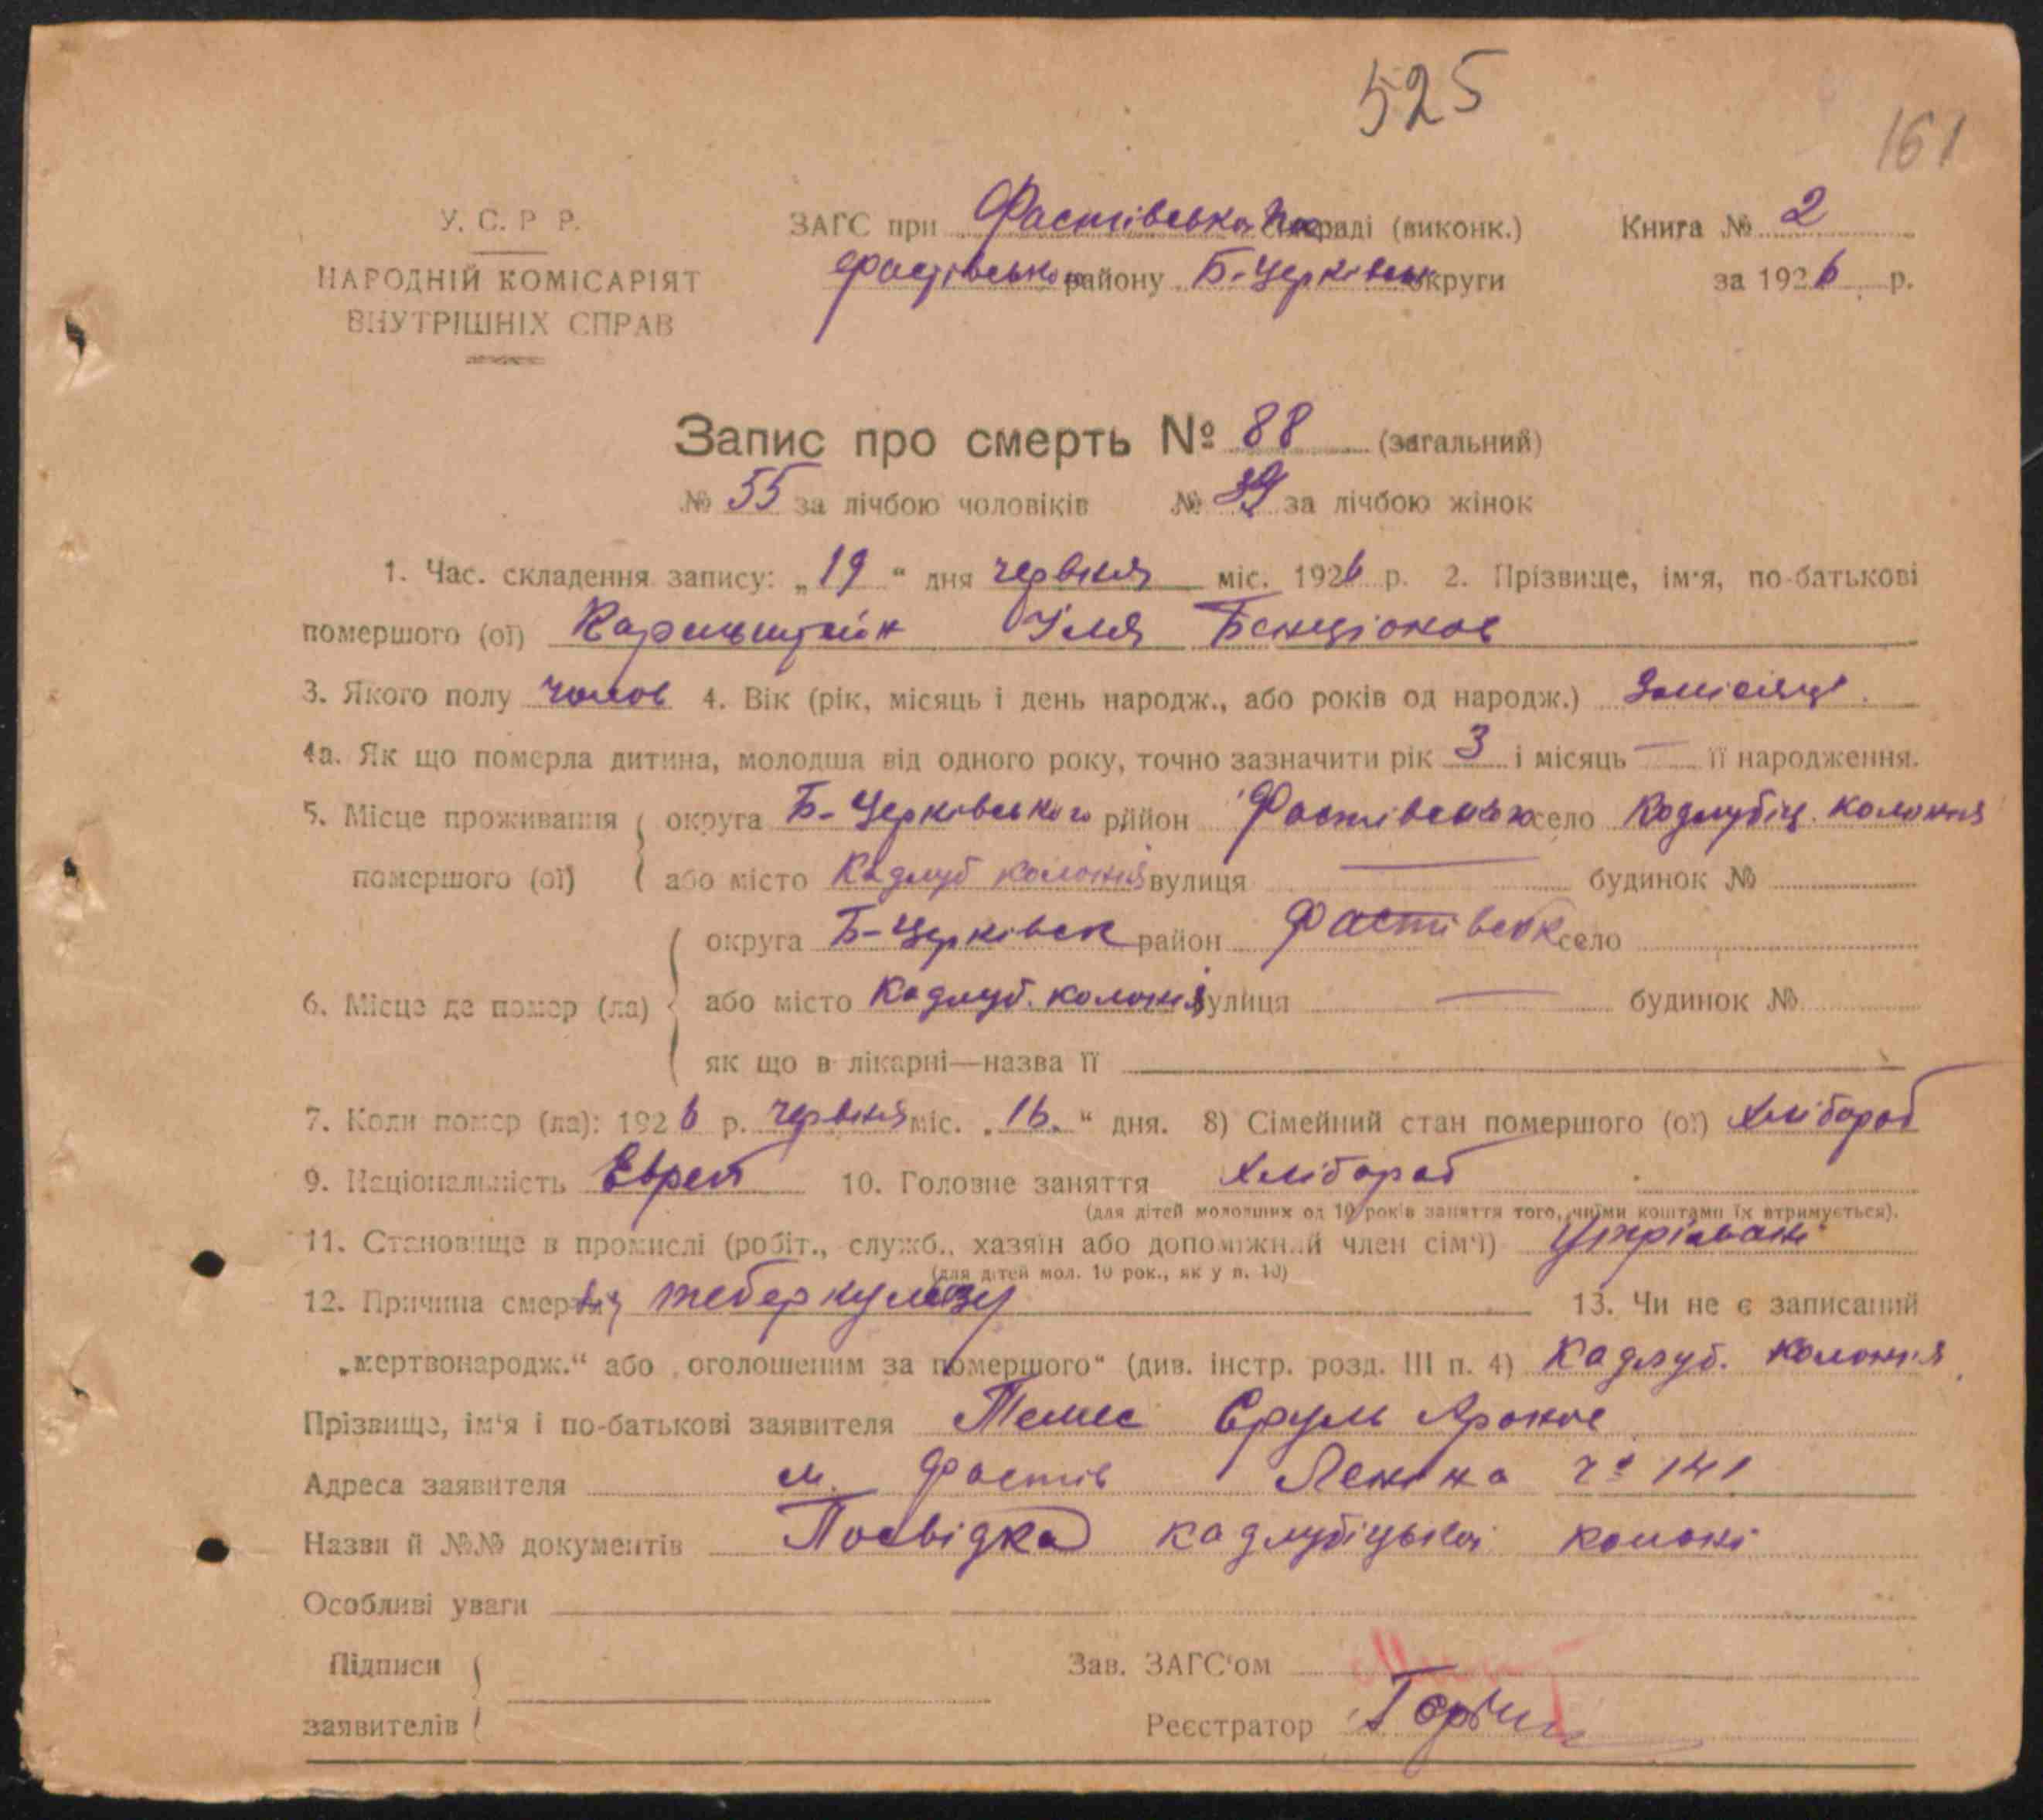 525
161
У. С. Р. Р.
ЗАГС при Фастівськ раді (виконк.) Книга № 2
НАРОДНІЙ КОМІСАРІЯТ
Фастівсько району Б-Церківськ округи за 1926 р.
ВНУТРІШНІХ СПРАВ
Запис про смерть № 88 (загальний)
№ 55 за лічбою чоловіків № за лічбою жінок
1. Час. складення запису: „19“ дня червня міс. 1926 р. 2. Прізвище, ім'я, по-батькові
помершого (ої) Ілля Бенціонов
3. Якого полу чолов 4. Вік (рік, місяць і день народж., або років од народж.) 3 місяці.
4а. Як що померла дитина, молодша від одного року, точно зазначити рік 3 і місяць — її народження.
5. Місце проживання округа Б-Церківського район Фастівськ село Кадлубіц. колонія
помершого (ої) або місто Кадлуб колонія вулиця — будинок №
округа Б-Церківськ район Фастівськ село
6. Місце де помер (ла) або місто Кадлуб. колонія вулиця — будинок №
як що в лікарні—назва її
7. Коли помер (ла): 1926 р. червня міс. „16.“ дня. 8) Сімейний стан помершого (ої) хлібороб
9. Національність Еврей 10. Головне заняття хлібороб
(для дітей молодших од 10 років заняття того, чиїми коштами їх втримується).
11. Становище в промислі (робіт., служб., хазяїн або допоміжний член сім'ї)
(для дітей мол. 10 рок., як у п. 10)
12. Причина смерти теберкульозу 13. Чи не є записаний
„мертвонародж.“ або „оголошеним за помершого“ (див. інстр. розд. III п. 4) Кадлуб. колонія
Прізвище, ім'я і по-батькові заявителя Сруль Аронов
Адреса заявителя м. Фастів Леніна № 141
Назви й №№ документів Посвідка кадлубіцької колоні
Особливі уваги
Підписи Зав. ЗАГС'ом
заявителів Реєстратор